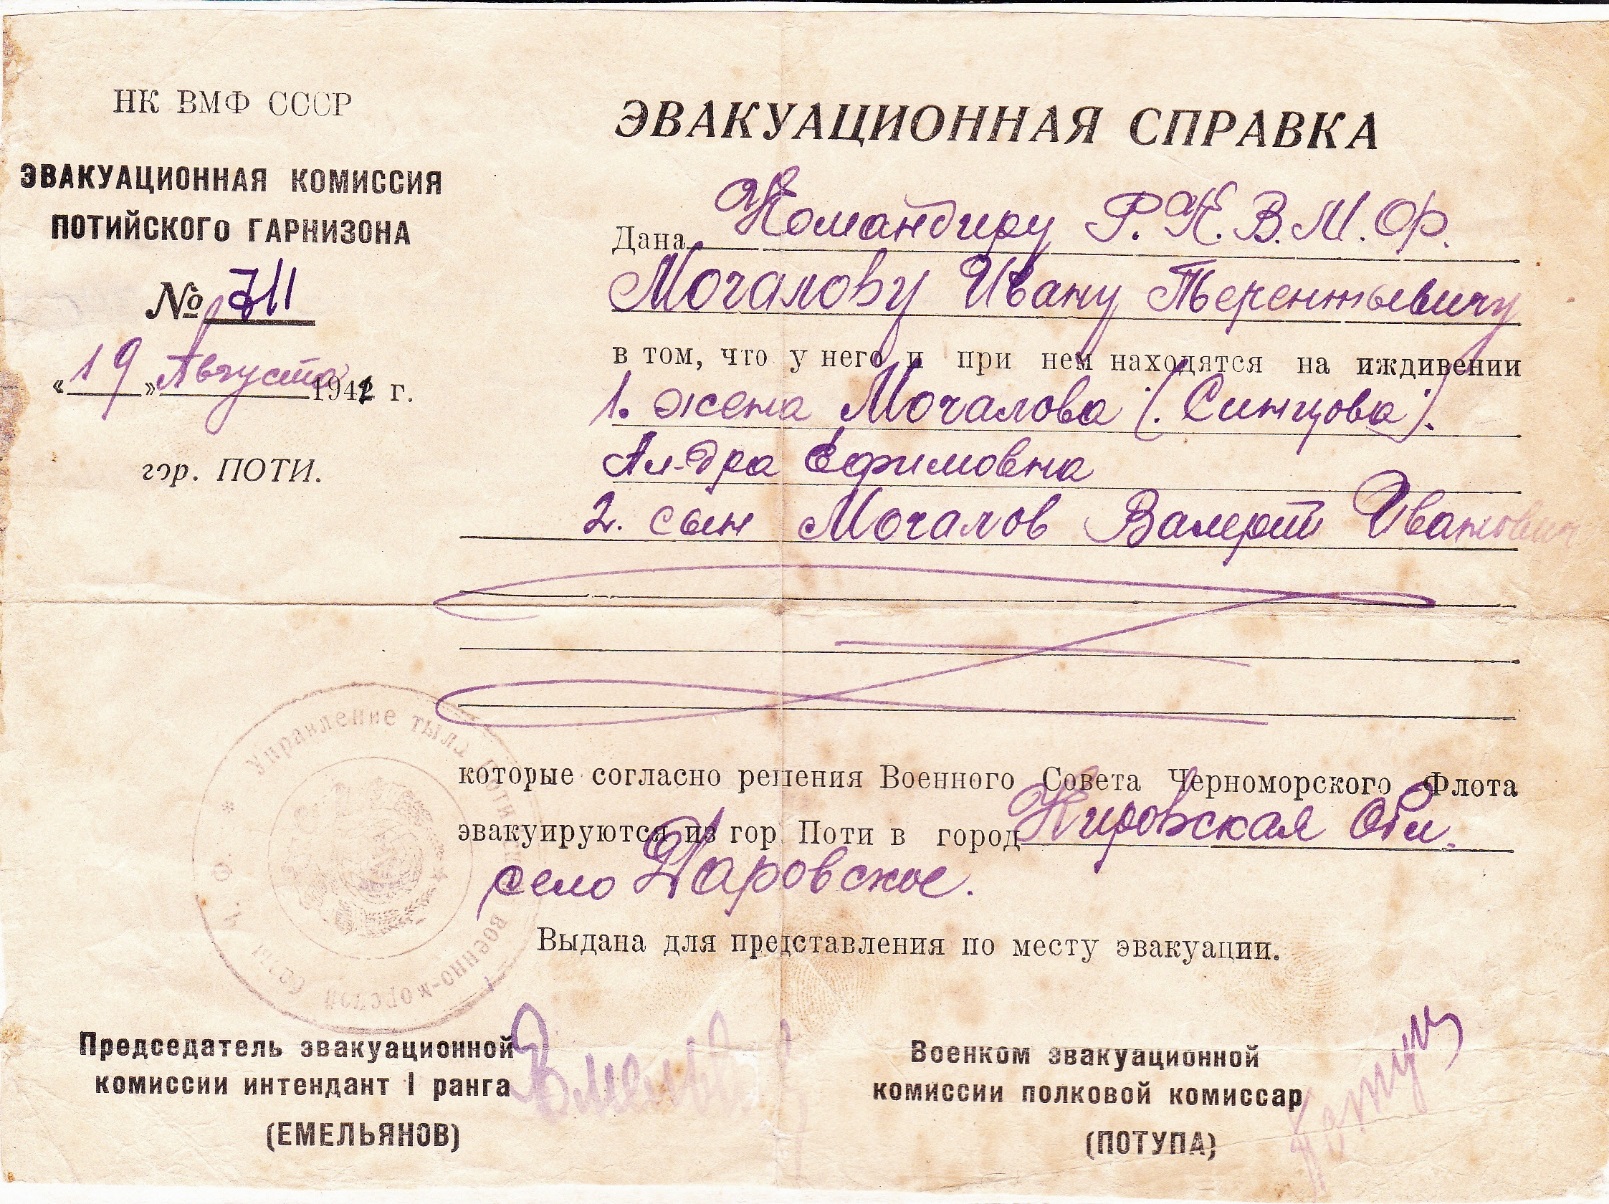 НК ВМФ СССР
ЭВАКУАЦИОННАЯ КОМИССИЯ
ПОТИЙСКОГО ГАРНИЗОНА
№ 711
«19» Августа 1942 г.
гор. ПОТИ.
ЭВАКУАЦИОННАЯ СПРАВКА
Дана Командиру Р.К.В.М.Ф.
Мочалову Ивану Терентьевичу
в том, что у него и при нем находятся на иждивении
1. жена Мочалова (Синцова).
Ал-дра Ефимовна
2. сын Мочалов Валерий Иванович
которые согласно решения Военного Совета Черноморского Флота
эвакуируются из гор Поти в город Кировская Обл.
село Даровское.
Выдана для представления по месту эвакуации.
Управление тыла Поти военно-морской базы * Ч. Ф. *
Председатель эвакуационной
комиссии интендант I ранга
(ЕМЕЛЬЯНОВ)
Военком эвакуационной
комиссии полковой комиссар
(ПОТУПА)